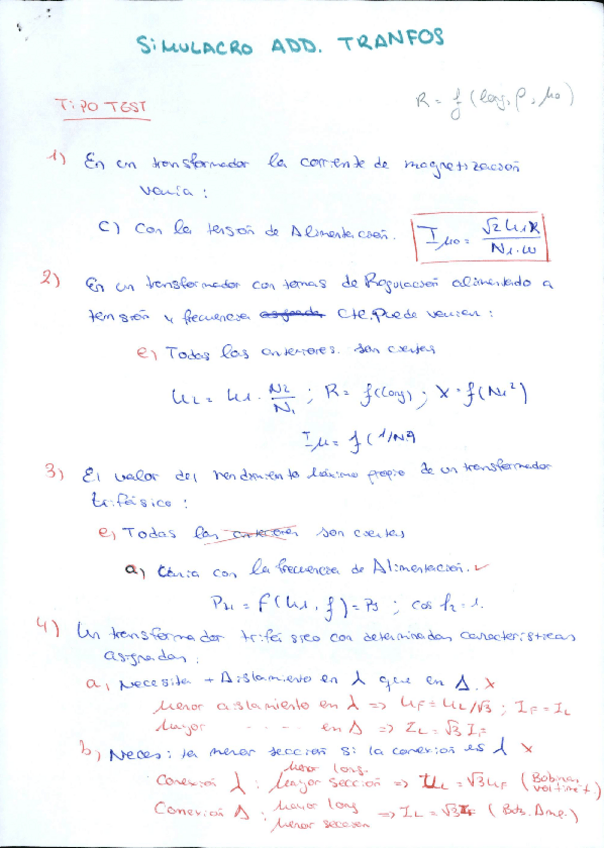 SIMULACRO ADD. TRANFOS
TIPO TEST
R = f (long, ρ, μo)
1) En un transformador la corriente de magnetización
varía:
C) Con la tensión de Alimentación.
Iμo = √2 U1 R / N1 · ω
2) En un transformador con tomas de Regulación alimentado a
tensión y frecuencia asignada cte. Puede variar:
e) Todas las anteriores son ciertas
U2 = U1 · N2/N1 ; R = f(long) ; X = f(N1²)
Iμ = f (1/N²)
3) El valor del rendimiento máximo propio de un transformador
trifásico:
e) Todas las anteriores son ciertas
a) Varía con la frecuencia de Alimentación. ✓
= f(U1, f) = ; cos = 1.
4) Un transformador trifásico con determinadas características
asignadas:
a) Necesita + Aislamiento en λ que en Δ. X
Menor aislamiento en λ => UF = UL/√3 ; IF = IL
Mayor ..... en Δ => IL = √3 IF
b) Necesita menor sección si la conexión es λ X
Conexión λ : Menor long. Mayor sección => UL = √3 UF (Bobinas voltimét.)
Conexión Δ : Mayor long Menor sección => IL = √3 IF (Bob. Amp.)